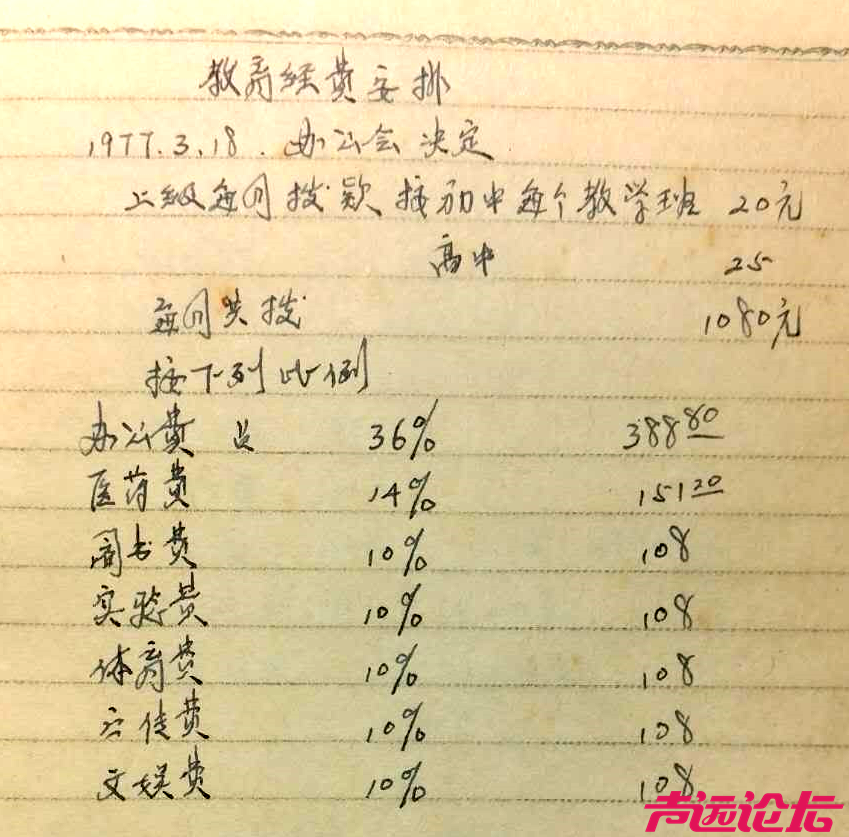 教育经费安排
1977.3.18.办公会决定
上级每月拨款按初中每个教学班 20元
高中 25
每月共拨 1080元
按下列比例
办公费 占 36% 388.80
医药费 14% 151.20
图书费 10% 108
实验费 10% 108
体育费 10% 108
宣传费 10% 108
文娱费 10% 108
声远论坛